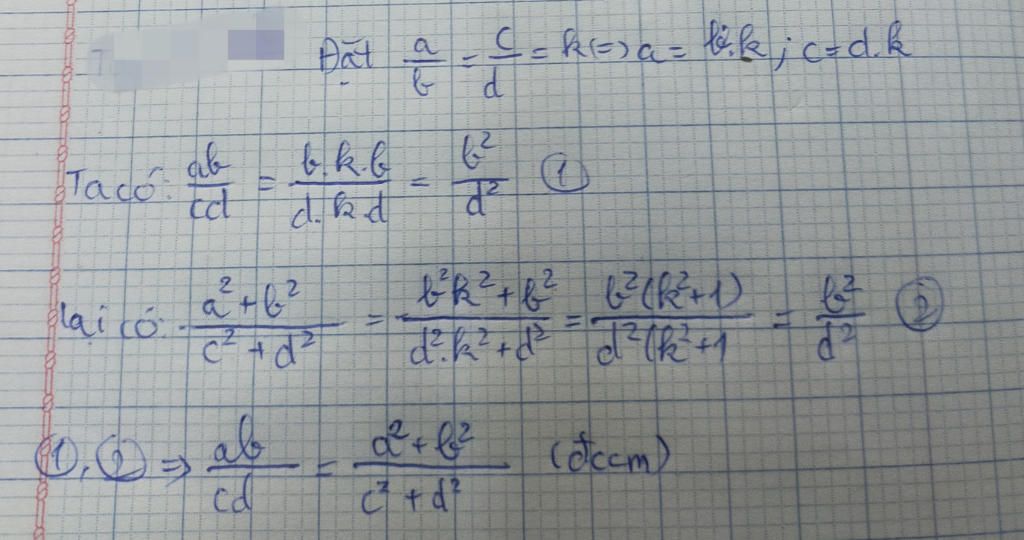 Đặt a/b = c/d = k (=) a = b.k ; c = d.k
Ta có: ab/cd = b.k.b/d.k.d = b²/d² ①
Lại có: a² + b²/c² + d² = b²k² + b²/d².k² + d² = b²(k²+1)/d²(k²+1 = b²/d² ②
①, ② => ab/cd = a² + b²/c² + d² (đccm)